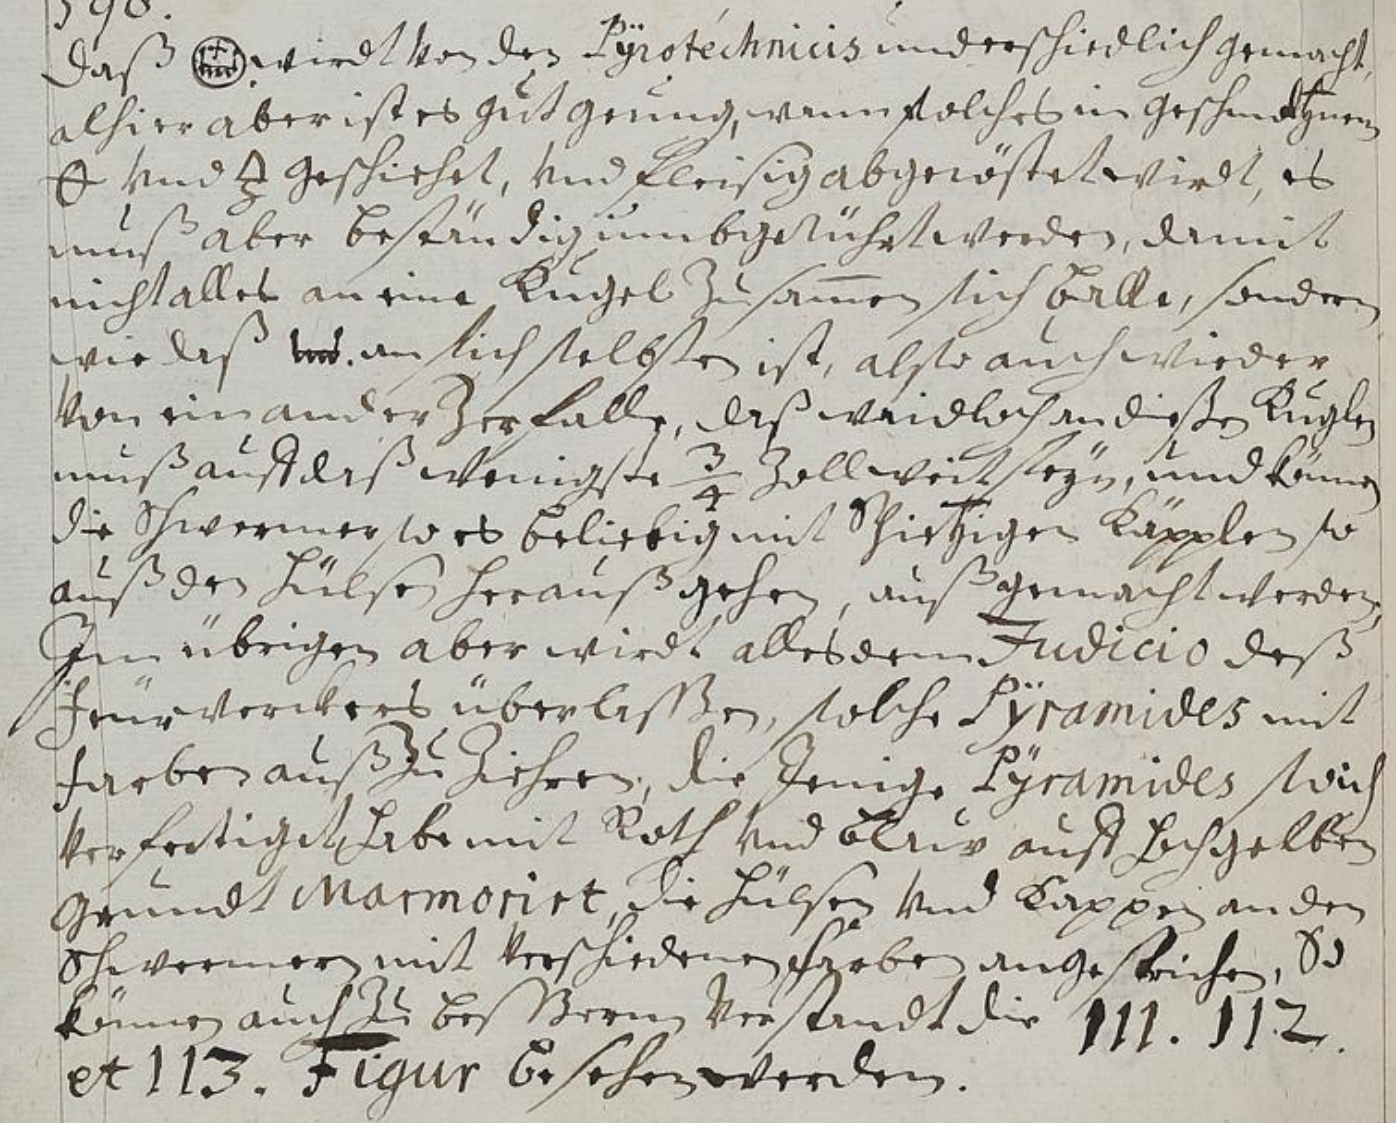 590.
daß wirdt von den Pÿrotechnicis underschiedlich gemacht,
alhier aber ist es gut genug, wann solches in geschmeltznem
und geschiehet, und fleisig abgeröstet wirdt, es
muß aber beständig umbgerührt werden, damit
nicht alles an eine Kugel zusam̄en sich balle, sondern
wie daß an sich selbsten ist, also auch wieder
von einander zerfalle, daß waidloch an dießen Kuglen
muß auff daß wenigste 3/4 Zoll weit seÿn, und können
die Schwermer so es beliebig mit Spietzigen Käpplen so
auß den Hülsen herauß gehen, außgemacht werden,
Im übrigen aber wirdt alles dem Judicio deß
Feürwerckers überlaßßen, solche Pÿramides mit
farben auß zu Ziehren, die Jenige Pÿramides so ich
verfertiget, habe mit Roth und blauw auff hochgelben
grundt Marmoriret, die Hülsen und Kappen an den
Schwermern mit verschiedenen farben angestrichen, So
können auch zu beßßerm verstandt die 111. 112.
et 113. Figur besehen werden.